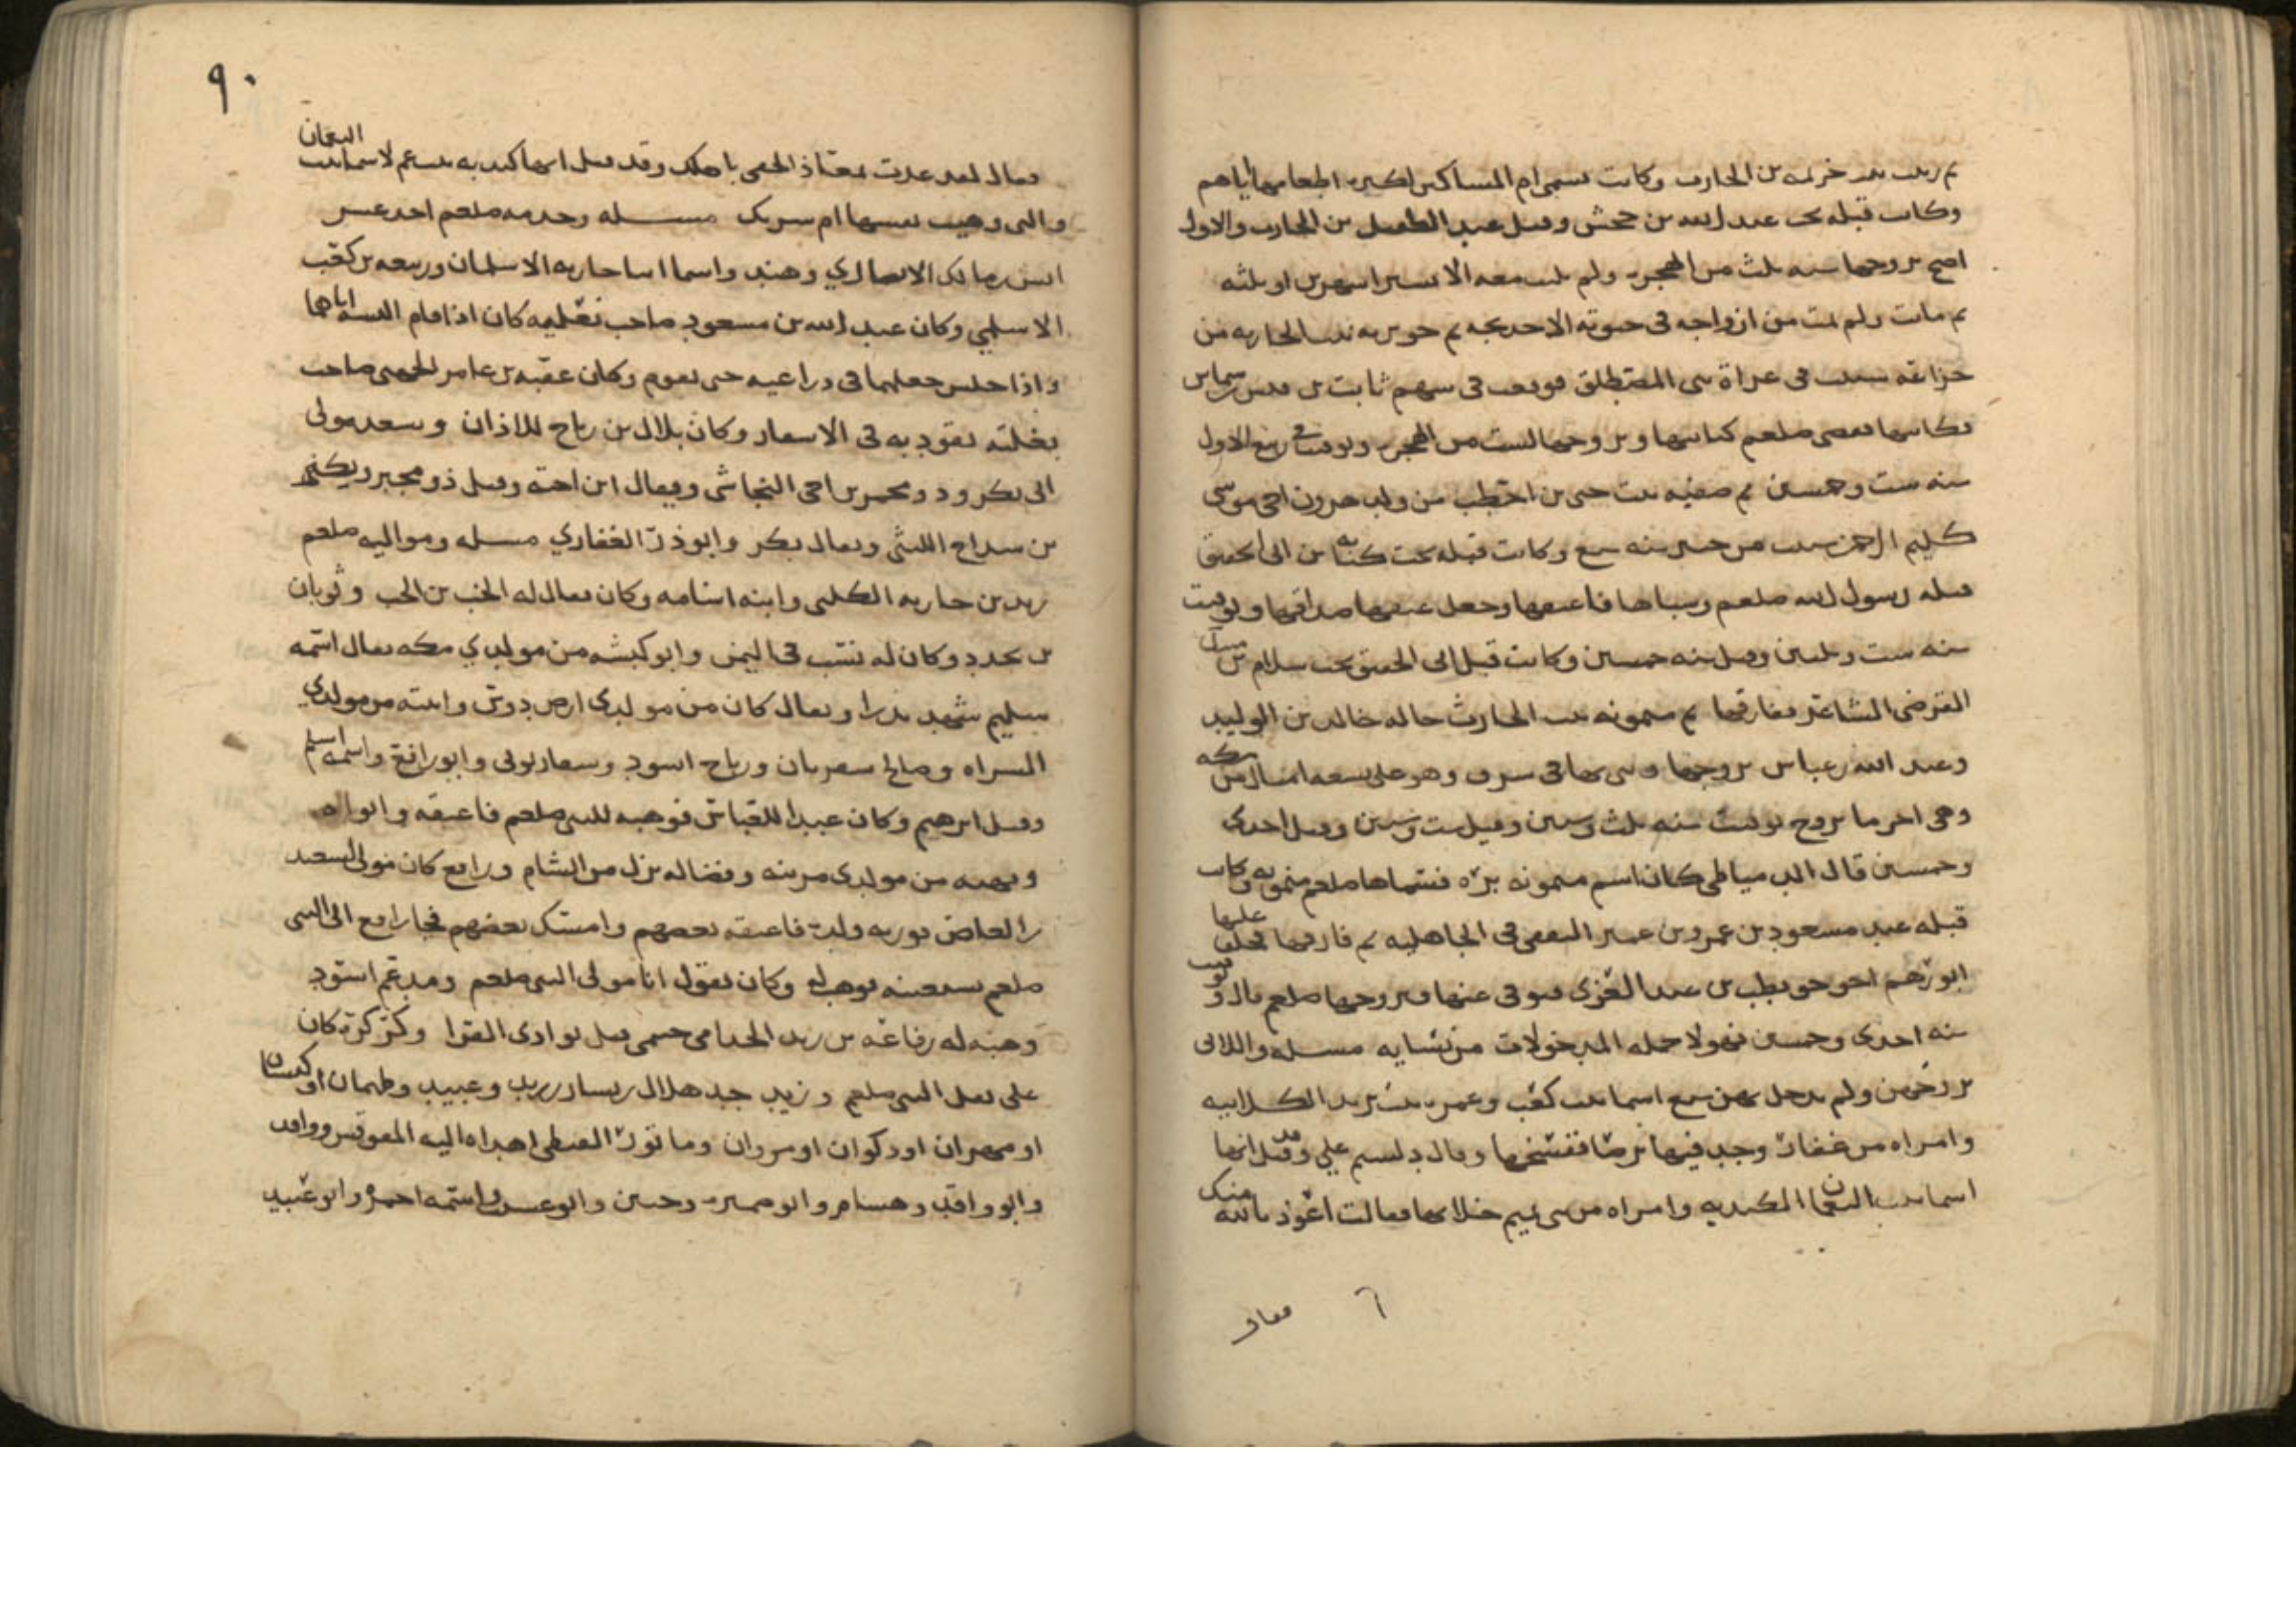 ثم زينب بنت خزيمة بن الحارث وكانت تسمى ام المساكين لكثرة اطعامها اياهم
وكانت قبله تحت عبد الله بن جحش وقيل عبد الطفيل بن الحارث والاول
اصح تزوجها سنه ثلث من الهجرة ولم تلبث معه الا يسيرا شهرين او ثلثه
ثم ماتت ولم يمت من ازواجه في حيوته الا خديجه ثم جويريه بنت الحارث من
خزاعه سبيت في غزاة بني المصطلق فوقعت في سهم ثابت بن قيس بن شماس
فكاتبها فقضى صلعم كتابتها وتزوجها لست من الهجرة وتوفيت في ربيع الاول
سنه ست وخمسين ثم صفيه بنت حيي بن اخطب من ولد هرون اخي موسى
كليم الرحمن سبيت من خيبر سنه سبع وكانت قبله تحت كنانه بن ابي الحقيق
قتله رسول الله صلعم وسباها فاعتقها وجعل عتقها صداقها وتوفيت
سنه ست وثلثين وقيل سنه خمسين وكانت قبل ابي الحقيق تحت سلام بن مشكم
القرضي الشاعر ففارقها ثم ميمونه بنت الحارث خاله خالد بن الوليد
وعبد الله بن عباس تزوجها وبنى بها في سرف وهو على تسعه اميال من مكه
وهي اخر ما تزوج توفيت سنه ثلث وستين وقيل ست وستين وقيل احدى
وخمسين قال الدمياطي كان اسم ميمونه بره فسماها صلعم ميمونه وكانت
قبله عند مسعود بن عمرو بن عمير الثقفي في الجاهليه ثم فارقها فخلف عليها
ابو رهم اخو حويطب بن عبد العزى فتوفي عنها فتزوجها صلعم قال وتوفيت
سنه احدى وخمسين فهولا جمله المدخولات من نسايه مسله واللاتي
تزوجهن ولم يدخل بهن سبع اسما بنت كعب وعمره بنت يزيد الكلابيه
وامراه من غفار وجد فيها برصا ففسخها وقال دلستم علي وقد قيل انها
اسما بنت النعمان الكنديه وامراه من بني تميم خلا بها فقالت اعوذ بالله منك
فقال
فقال لقد عذت بمعاذ الحقي باهلك وقد قيل انها كنديه بنت عم لاسما بنت النعمان
والتي وهبت نفسها ام شريك مسله وخدمه صلعم احد عشر
انس بن مالك الانصاري وهند واسما ابنا حارثه الاسلميان وربيعه بن كعب
الاسلمي وكان عبد الله بن مسعود صاحب نعليه كان اذا قام البسه اياهما
واذا جلس جعلهما في ذراعيه حتى يقوم وكان عقبه بن عامر الجهني صاحب
بغلته يقود به في الاسفار وكان بلال بن رباح للاذان وسعد مولى
ابي بكر وذو مخمر بن اخي النجاشي ويقال ابن اخته وقيل ذو مخبر وبكير
بن شداخ الليثي ويقال بكر وابو ذر الغفاري مسله ومواليه صلعم
زيد بن حارثه الكلبي وابنه اسامه وكان يقال له الحب بن الحب وثوبان
بن بجدد وكان له نسب في اليمن وابو كبشه من مولدي مكه يقال اسمه
سليم شهد بدرا ويقال كان من مولدي ارض دوس وانسه من مولدي
السراه وصالح شقران ورباح اسود ويسار نوبي وابو رافع واسمه اسلم
وقيل ابرهيم وكان عبدا للعباس فوهبه للنبي صلعم فاعتقه وابو
مويهبه من مولدي مزينه وفضاله نزل من الشام ورافع كان مولى لسعيد
بن العاص فورثه ولده فاعتقه بعضهم وامسك بعضهم فجا رافع الى النبي
صلعم يستعينه فوهب له وكان يقول انا مولى النبي صلعم ومدعم اسود
وهبه له رفاعه بن زيد الجذامي حسمي قتل بوادي القرا وكركرة كان
على ثقل النبي صلعم وزيد جد هلال بن يسار بن زيد وعبيد وطهمان او كيسان
او مهران او ذكوان او مروان ومابور القبطي اهداه اليه المقوقس وواقد
وابو واقد وهشام وابو ضميره وحنين وابو عسيب واسمه احمر وابو عبيد
٩٠